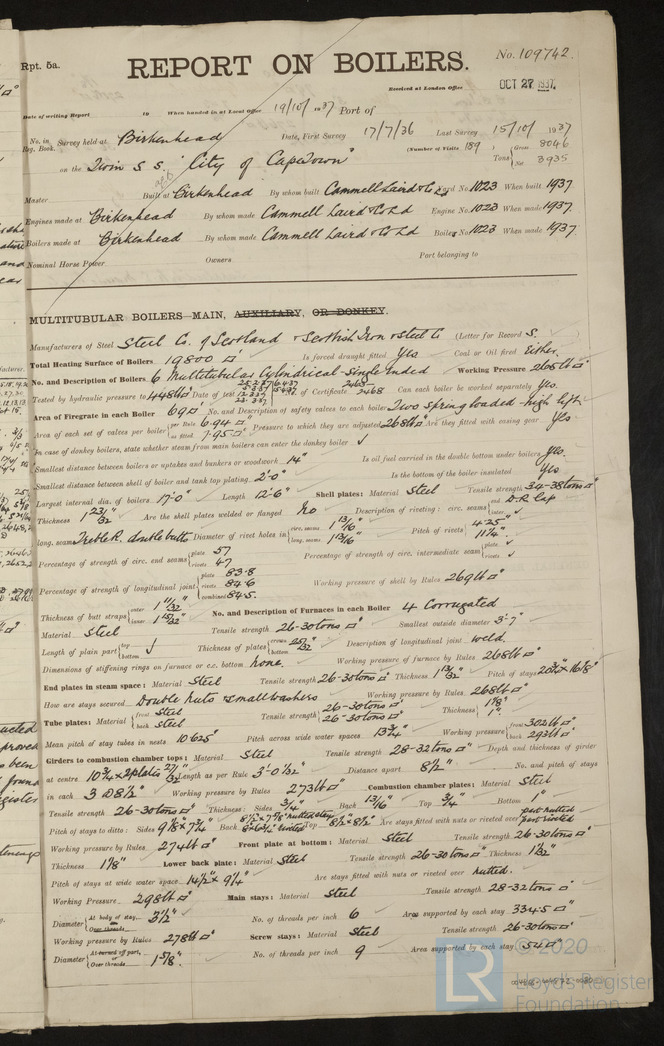 Rpt. 5a.
No. 109742.
REPORT ON BOILERS.
Received at London Office OCT 27 1937
Date of writing Report 19 When handed in at Local Office 19/10/ 1937 Port of
No. in Reg. Book. Survey held at Birkenhead Date, First Survey 17/7/36 Last Survey 15/10/ 1937
(Number of Visits 189)
on the Twin S S. "City of CapeTown" Tons Gross 8046 Net 3935
Master Built at Birkenhead By whom built Cammell Laird & Co Ld Yard No. 1023 When built 1937.
Engines made at Birkenhead By whom made Cammell Laird & Co Ld Engine No. 1023 When made 1937.
Boilers made at Birkenhead By whom made Cammell Laird & Co Ld Boiler No. 1023 When made 1937.
Nominal Horse Power Owners Port belonging to
MULTITUBULAR BOILERS MAIN, AUXILIARY, OR DONKEY.
Manufacturers of Steel Steel Co. of Scotland & Scottish Iron & Steel Co (Letter for Record S.)
Total Heating Surface of Boilers 19800 □' Is forced draught fitted Yes Coal or Oil fired Either.
No. and Description of Boilers 6 Multitubular Cylindrical-Single Ended Working Pressure 268 lb □"
Tested by hydraulic pressure to 448 lb □" Date of test No. of Certificate 2468 Can each boiler be worked separately Yes.
Area of Firegrate in each Boiler 69 □' No. and Description of safety valves to each boiler Two spring loaded - high lift
Area of each set of valves per boiler per Rule 6.94 □" as fitted 7.95 □" Pressure to which they are adjusted 268 lb □" Are they fitted with easing gear Yes
In case of donkey boilers, state whether steam from main boilers can enter the donkey boiler ✓
Smallest distance between boilers or uptakes and bunkers or woodwork 14" Is oil fuel carried in the double bottom under boilers Yes.
Smallest distance between shell of boiler and tank top plating 2'-0" Is the bottom of the boiler insulated Yes
Largest internal dia. of boilers 17'-0" Length 12'-6" Shell plates: Material Steel Tensile strength 34-38 tons □"
Thickness 1 23/32" Are the shell plates welded or flanged No Description of riveting: circ. seams end D.R. Lap inter. ✓
long. seams Treble R. double butts Diameter of rivet holes in circ. seams 1 13/16" long. seams 1 13/16" Pitch of rivets 4.25" 11 1/4".
Percentage of strength of circ. end seams plate 57 rivets 47 Percentage of strength of circ. intermediate seam plate ✓ rivets ✓
Percentage of strength of longitudinal joint plate 83.8 rivets 84.6 combined 84.5 Working pressure of shell by Rules 269 lb □"
Thickness of butt straps outer 1 11/32" inner 1 15/32" No. and Description of Furnaces in each Boiler 4 Corrugated
Material Steel Tensile strength 26-30 tons □" Smallest outside diameter 3'-7"
Length of plain part top bottom ✓ Thickness of plates crown bottom 25/32" Description of longitudinal joint weld.
Dimensions of stiffening rings on furnace or c.c. bottom none. Working pressure of furnace by Rules 268 lb □"
End plates in steam space: Material Steel Tensile strength 26-30 tons □" Thickness 1 13/32" Pitch of stays
How are stays secured Double nuts & small washers Working pressure by Rules 268 lb □"
Tube plates: Material front Steel back Steel Tensile strength 26-30 tons □" 26-30 tons □" Thickness 1 1/8" 1".
Mean pitch of stay tubes in nests 10.625" Pitch across wide water spaces 13 3/4" Working pressure front 302 lb □" back 293 lb □"
Girders to combustion chamber tops: Material Steel Tensile strength 28-32 tons □" Depth and thickness of girder
at centre 10 3/4" x 2 plates 27/32" Length as per Rule 3'-0 1/32" Distance apart 8 1/2" No. and pitch of stays
in each 3 @ 8 1/2" Working pressure by Rules 273 lb □" Combustion chamber plates: Material Steel
Tensile strength 26-30 tons □" Thickness: Sides 3/4" Back 13/16" Top 3/4" Bottom 1"
Pitch of stays to ditto: Sides 9 1/8" x 7 3/4" Back Top 8 1/2" x 8 1/2" Are stays fitted with nuts or riveted over part nutted part riveted
Working pressure by Rules 274 lb □" Front plate at bottom: Material Steel Tensile strength 26-30 tons □"
Thickness 1 1/8" Lower back plate: Material Steel Tensile strength 26-30 tons □" Thickness 1 1/32"
Pitch of stays at wide water space 14 1/2" x 9 1/4" Are stays fitted with nuts or riveted over nutted.
Working Pressure 298 lb □" Main stays: Material Steel Tensile strength 28-32 tons □"
Diameter At body of stay, or Over threads 3 1/2" No. of threads per inch 6 Area supported by each stay 334.5 □"
Working pressure by Rules 278 lb □" Screw stays: Material Steel Tensile strength 26-30 tons □"
Diameter At turned off part, or Over threads 1 5/8". No. of threads per inch 9 Area supported by each stay 54 □"
© 2020
Lloyd's Register
Foundation
LR